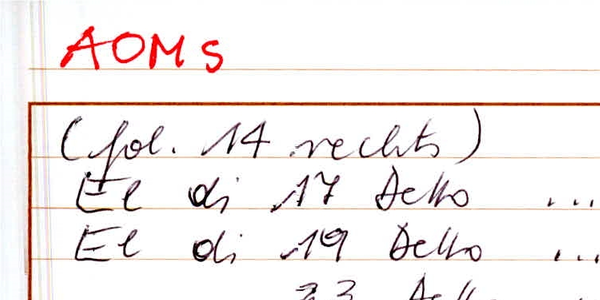 AOM s
(fol. 14 rechts)
El di 17 Detto ...
El di 19 Detto ...
23 Detto